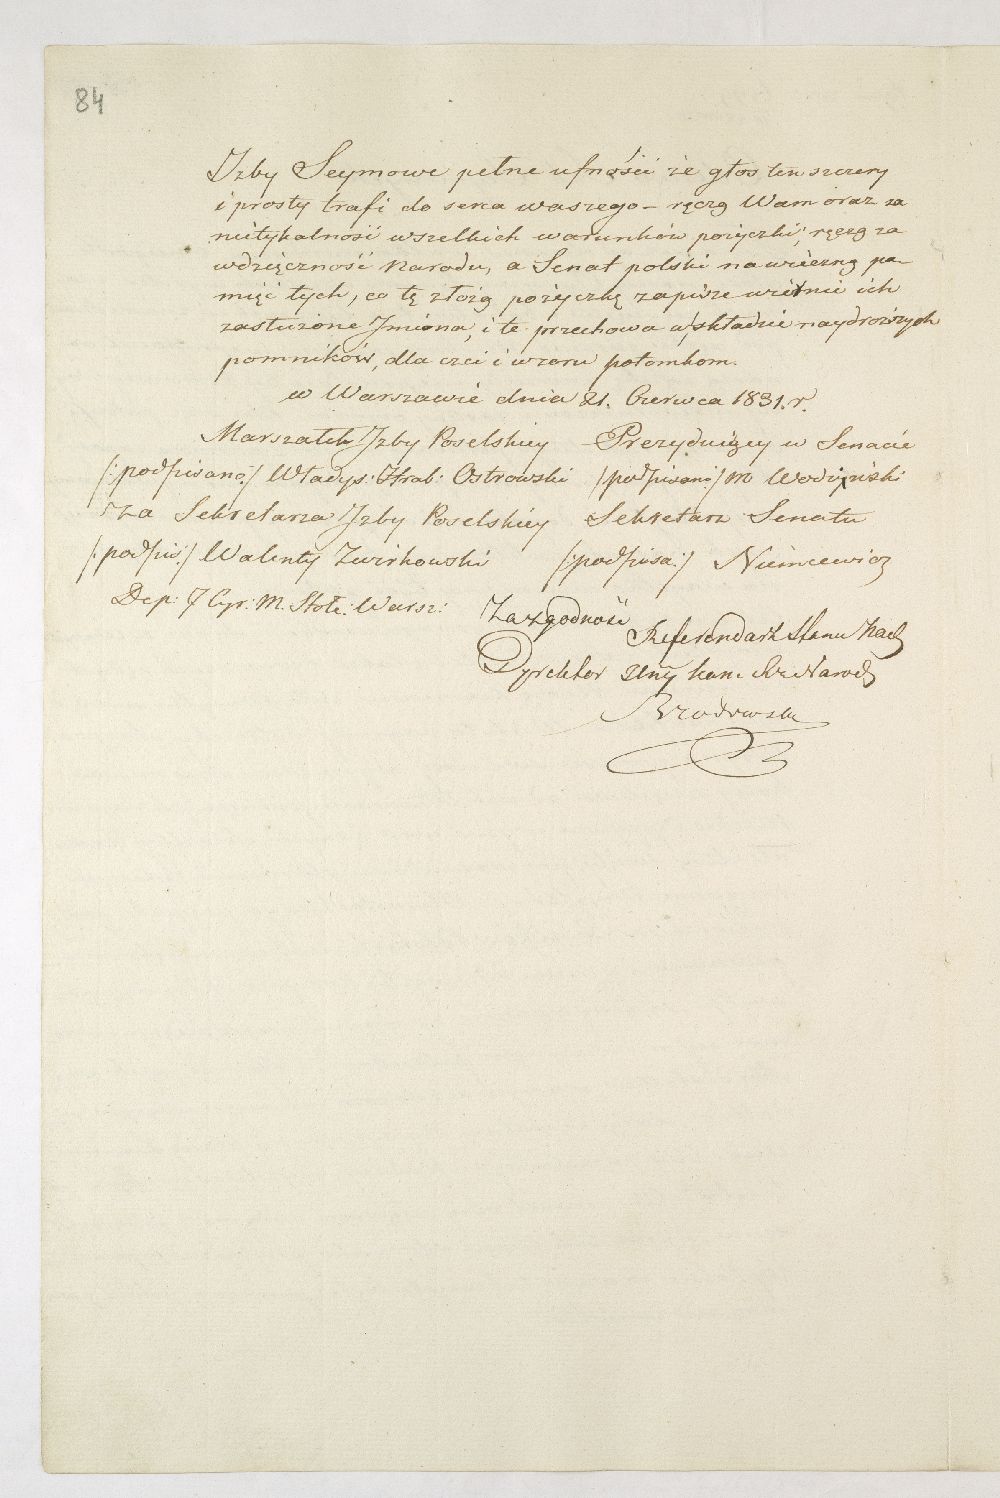 84
Izby Seymowe pełne ufności że głos ten szczery
i prosty trafi do serca waszego – ręczą Wam oraz za
nietykalność wszelkich warunków pożyczki, ręczą za
wdzięczność Narodu, a Senat polski na wieczną pa-
mięć tych, co tę złożą pożyczkę zapisze wiernie ich
zasłużone Jmiona, i te przechowa w składzie naydroższych
pomników, dla czci i wzoru potomkom.
w Warszawie dnia 21. Czerwca 1831. r.
Marszałek Izby Poselskiey – Prezyduiący w Senacie
/:podpisano:/ Władys: Hrab: Ostrowski /podpisano:/ M Wodzyński
Za Sekretarza Izby Poselskiey Sekretarz Senatu
/:podpis:/ Walenty Zwirkowski /:podpisa:/ Niemcewicz
Dep: 7 Cyr: M. Stołe: Warsz:
Za zgodność
Referendarz Stanu
Dyrektor Kan: Rz: Narod
Brodowski